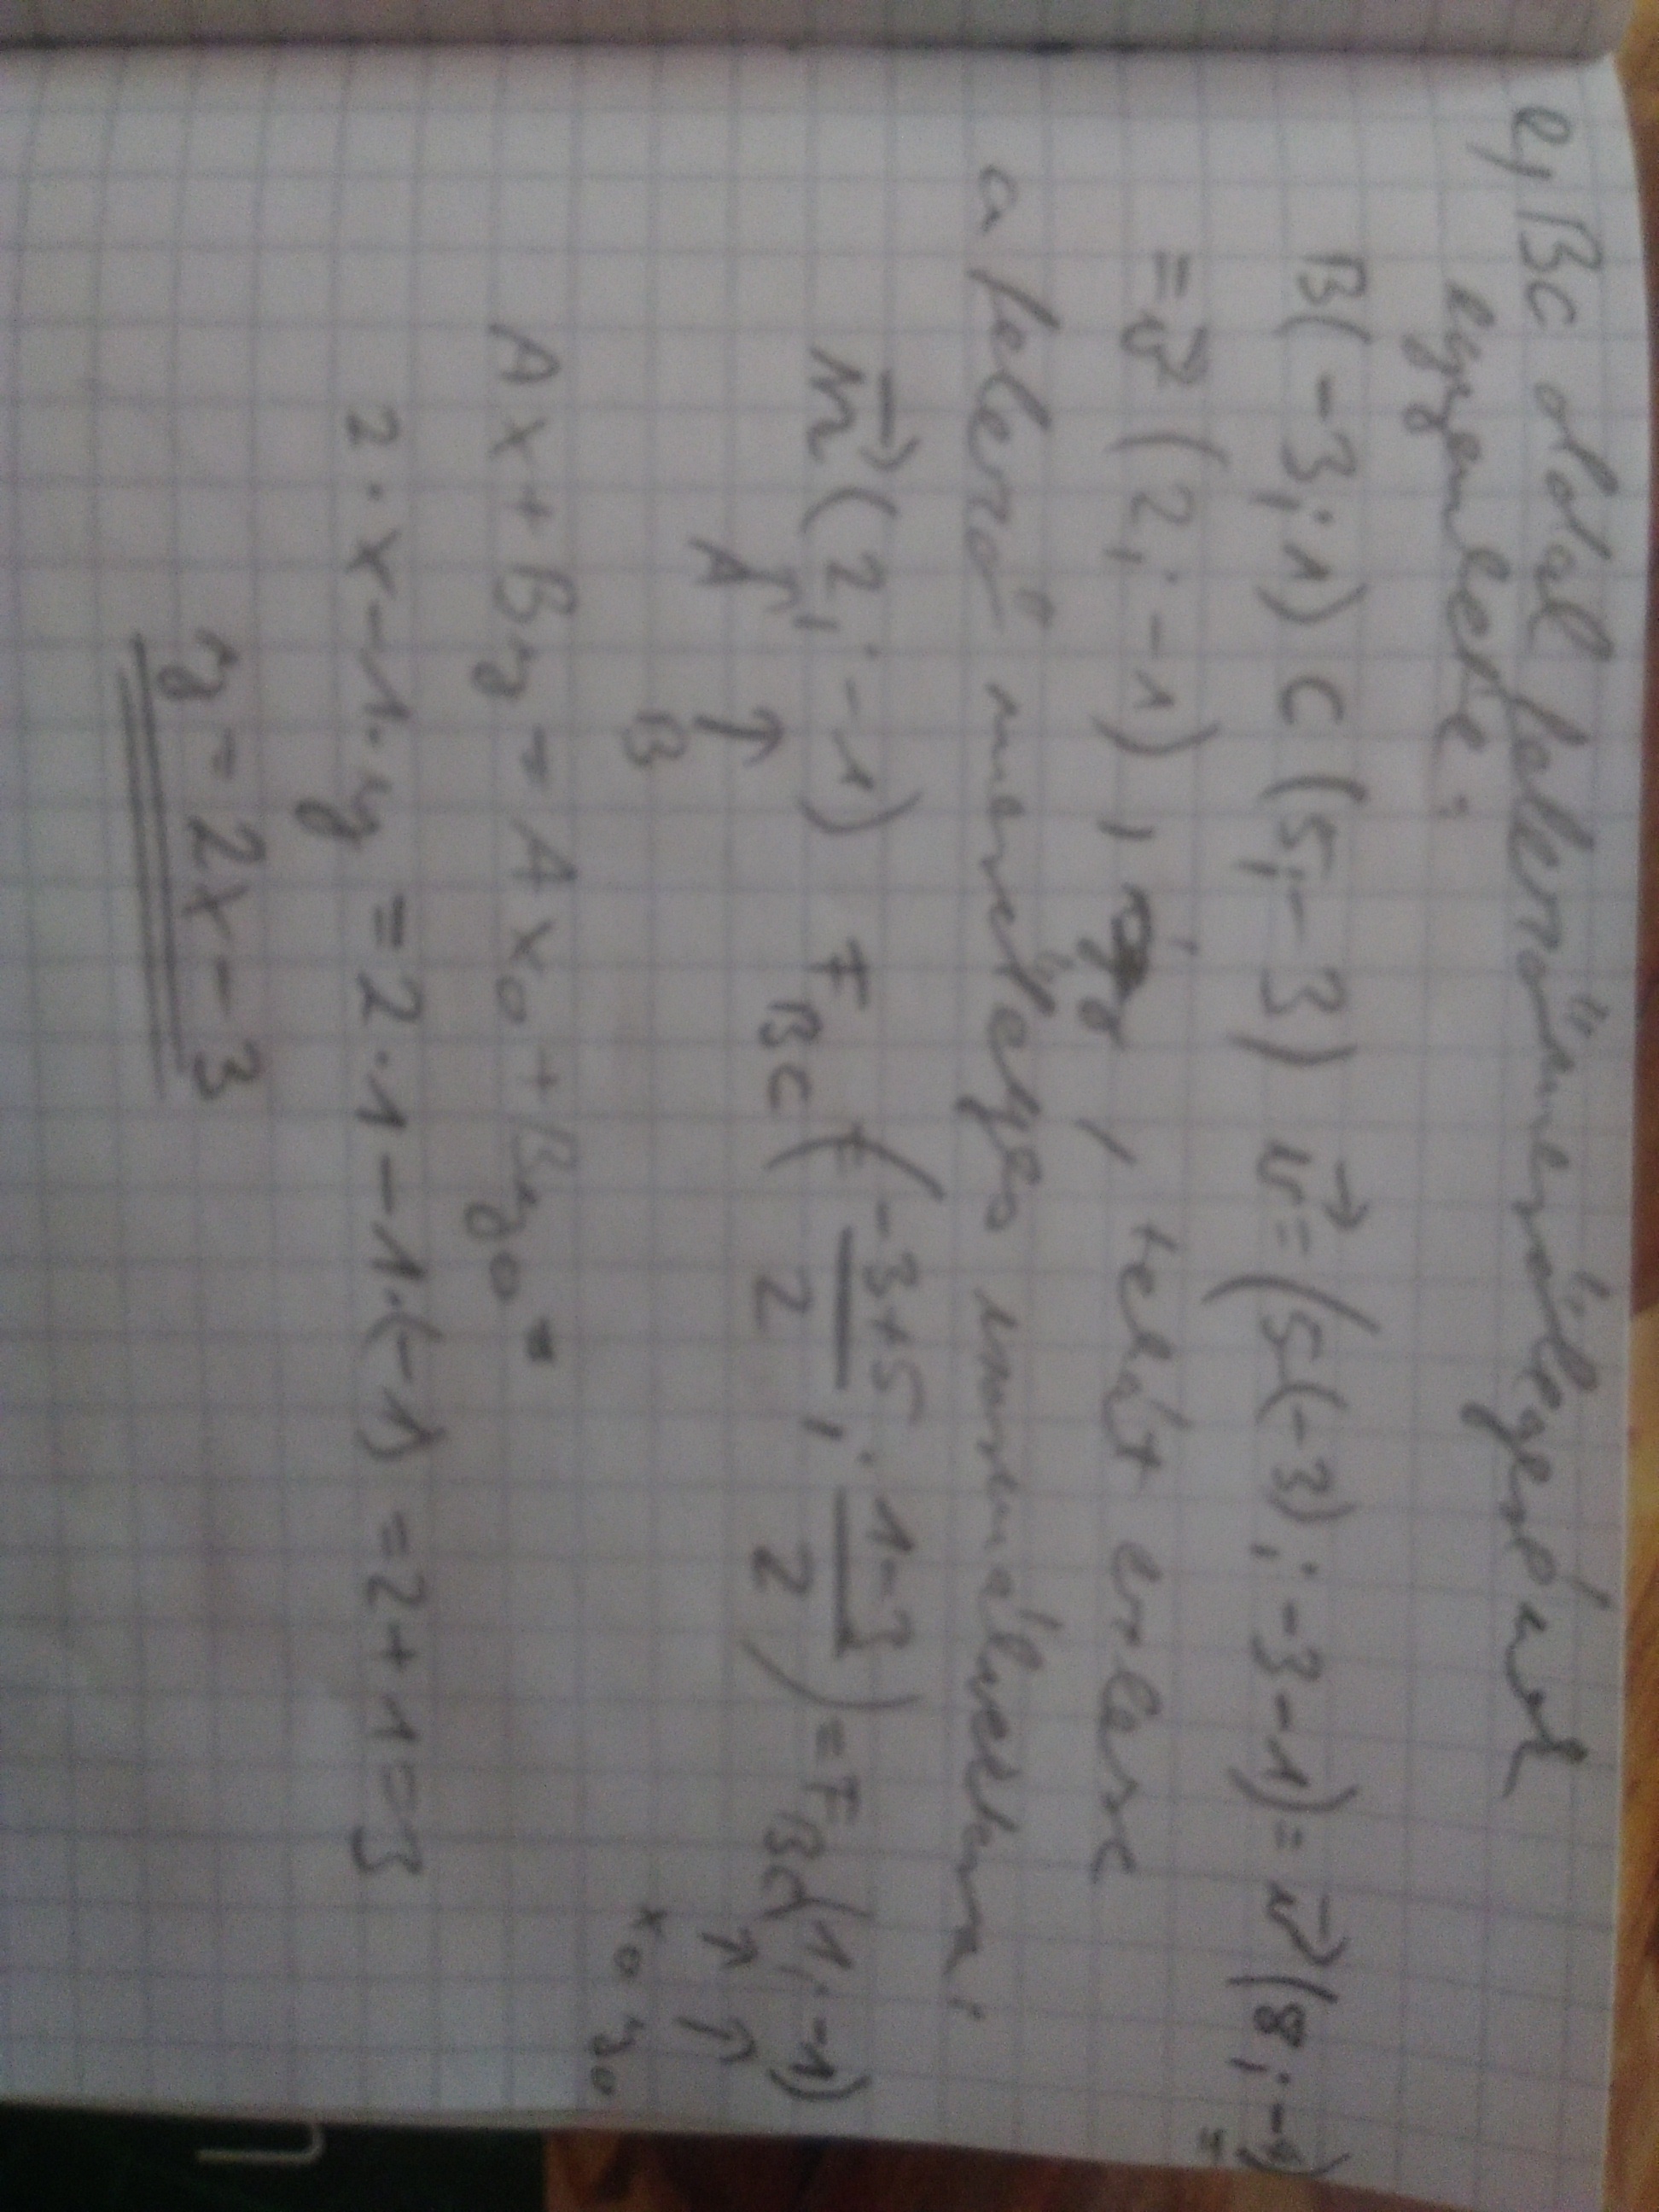 e, BC oldal felezőmerőlegesének
egyenlete:
B(-3;1) C(5;-3) v⃗=(5(-3);-3-1)=v⃗(8;-4)
=v⃗(2;-1), így, tehát ez lesz
a felező merőleges normálvektora:
n⃗(2;-1) F BC(-3+5/2; 1-3/2)=F BC(1;-1)
A ↑ ↑ B ↑ x0 ↑ y0
Ax+By=Ax0+By0
2·x-1·y=2·1-1·(-1)=2+1=3
y=2x-3